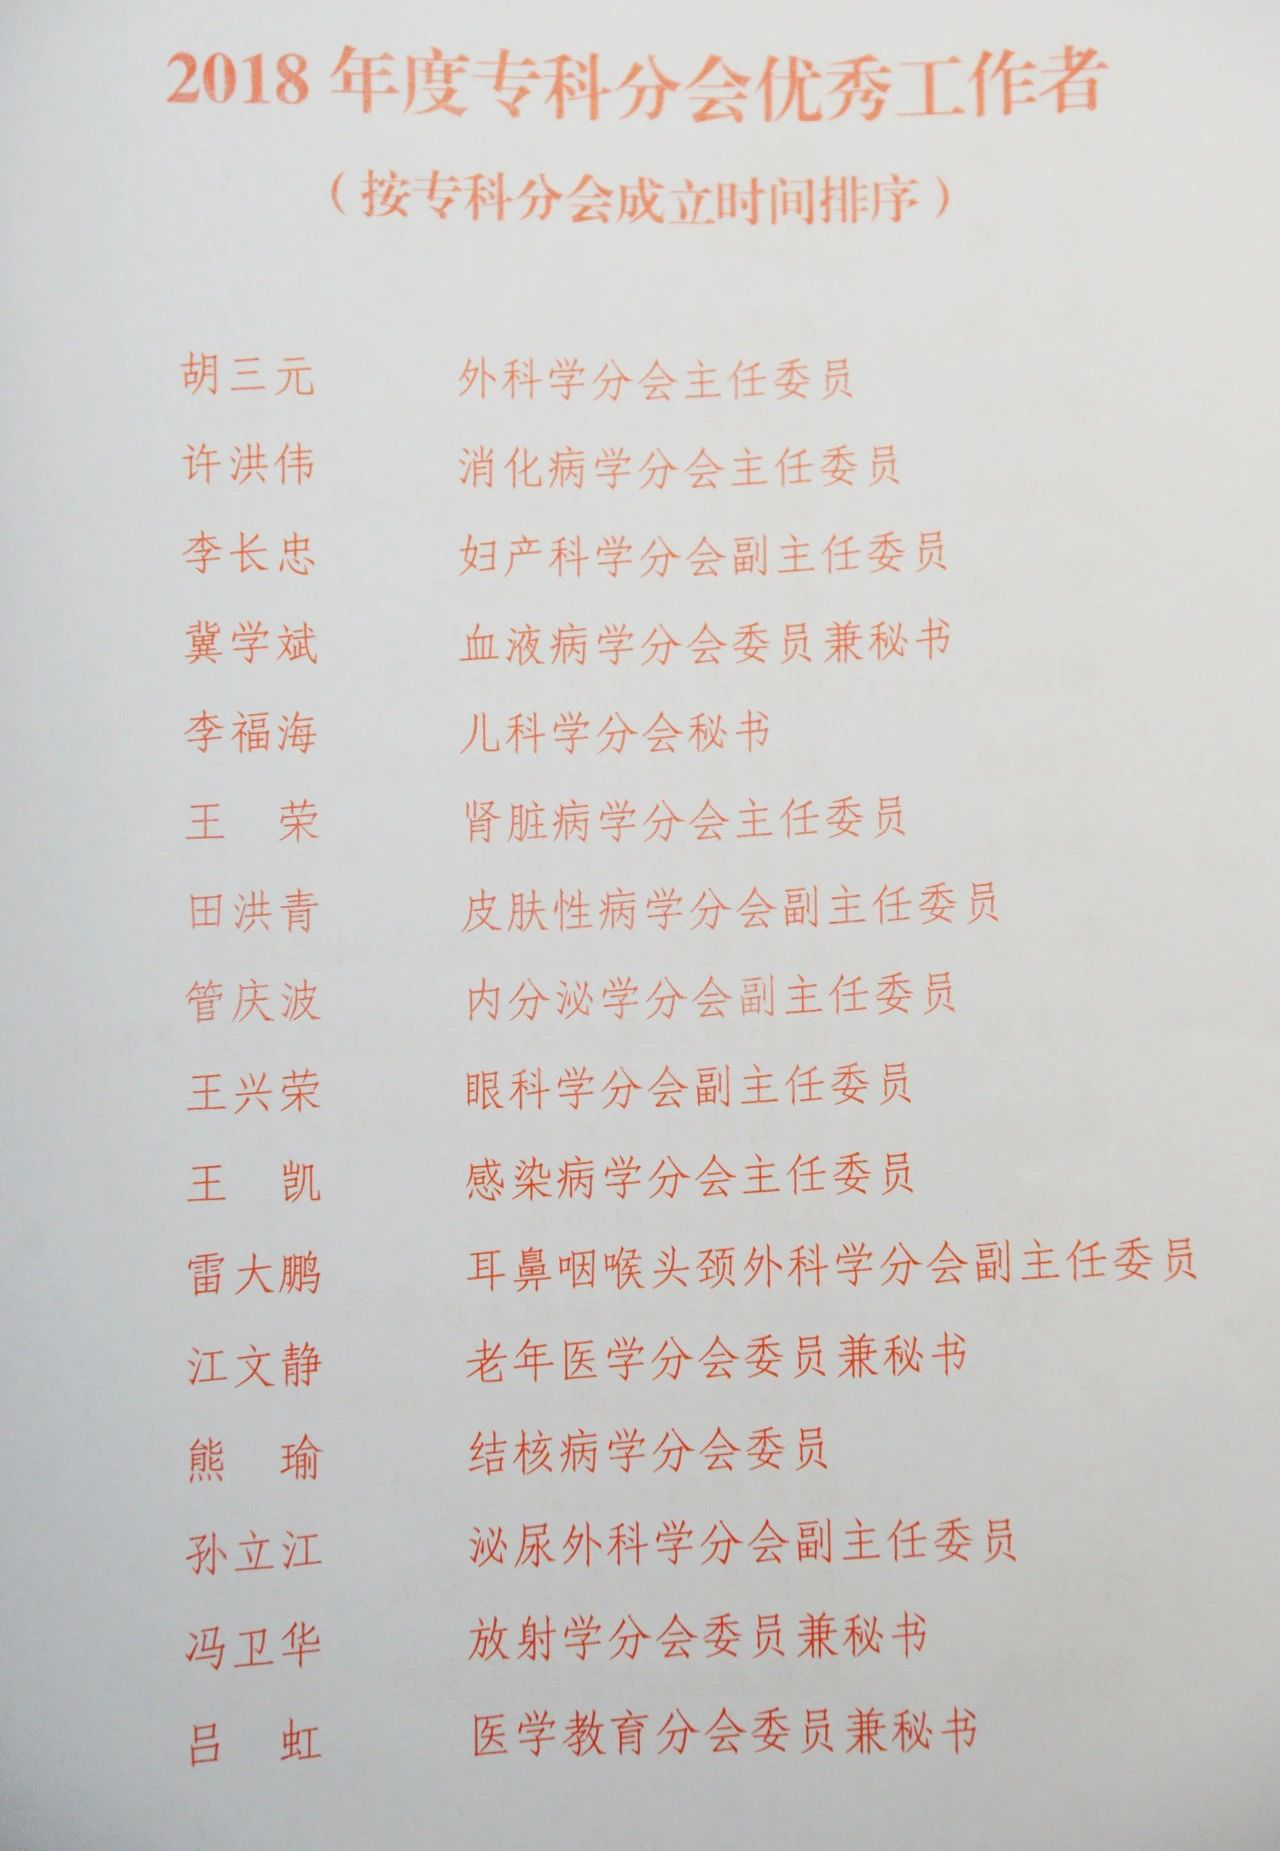 2018 年度专科分会优秀工作者
（按专科分会成立时间排序）
胡三元 外科学分会主任委员
许洪伟 消化病学分会主任委员
李长忠 妇产科学分会副主任委员
冀学斌 血液病学分会委员兼秘书
李福海 儿科学分会秘书
王 荣 肾脏病学分会主任委员
田洪青 皮肤性病学分会副主任委员
管庆波 内分泌学分会副主任委员
王兴荣 眼科学分会副主任委员
王 凯 感染病学分会主任委员
雷大鹏 耳鼻咽喉头颈外科学分会副主任委员
江文静 老年医学分会委员兼秘书
熊 瑜 结核病学分会委员
孙立江 泌尿外科学分会副主任委员
冯卫华 放射学分会委员兼秘书
吕 虹 医学教育分会委员兼秘书